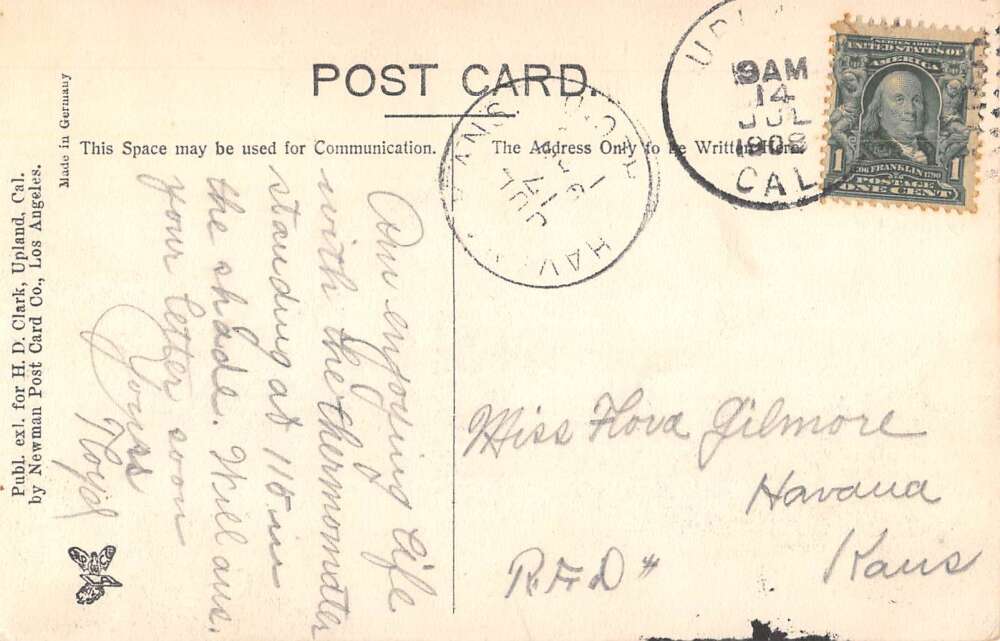 POST CARD.
This Space may be used for Communication.
The Address Only to be Written Here.
UPL
9 AM
14
JUL
1908
CAL
HAVANA KANS.
JUL
17
SERIES 1902
UNITED STATES OF
AMERICA
1 1
FRANKLIN 1790
POSTAGE
ONE CENT
Made in Germany
Publ. exl. for H. D. Clark, Upland, Cal.
by Newman Post Card Co., Los Angeles.
Am enjoying life
with the thermomater
standing at 110 in
the shade. Will ans.
your letter soon
Yours
Floyd
Miss Flova Gilmore
Havana
Kans
R.F.D #